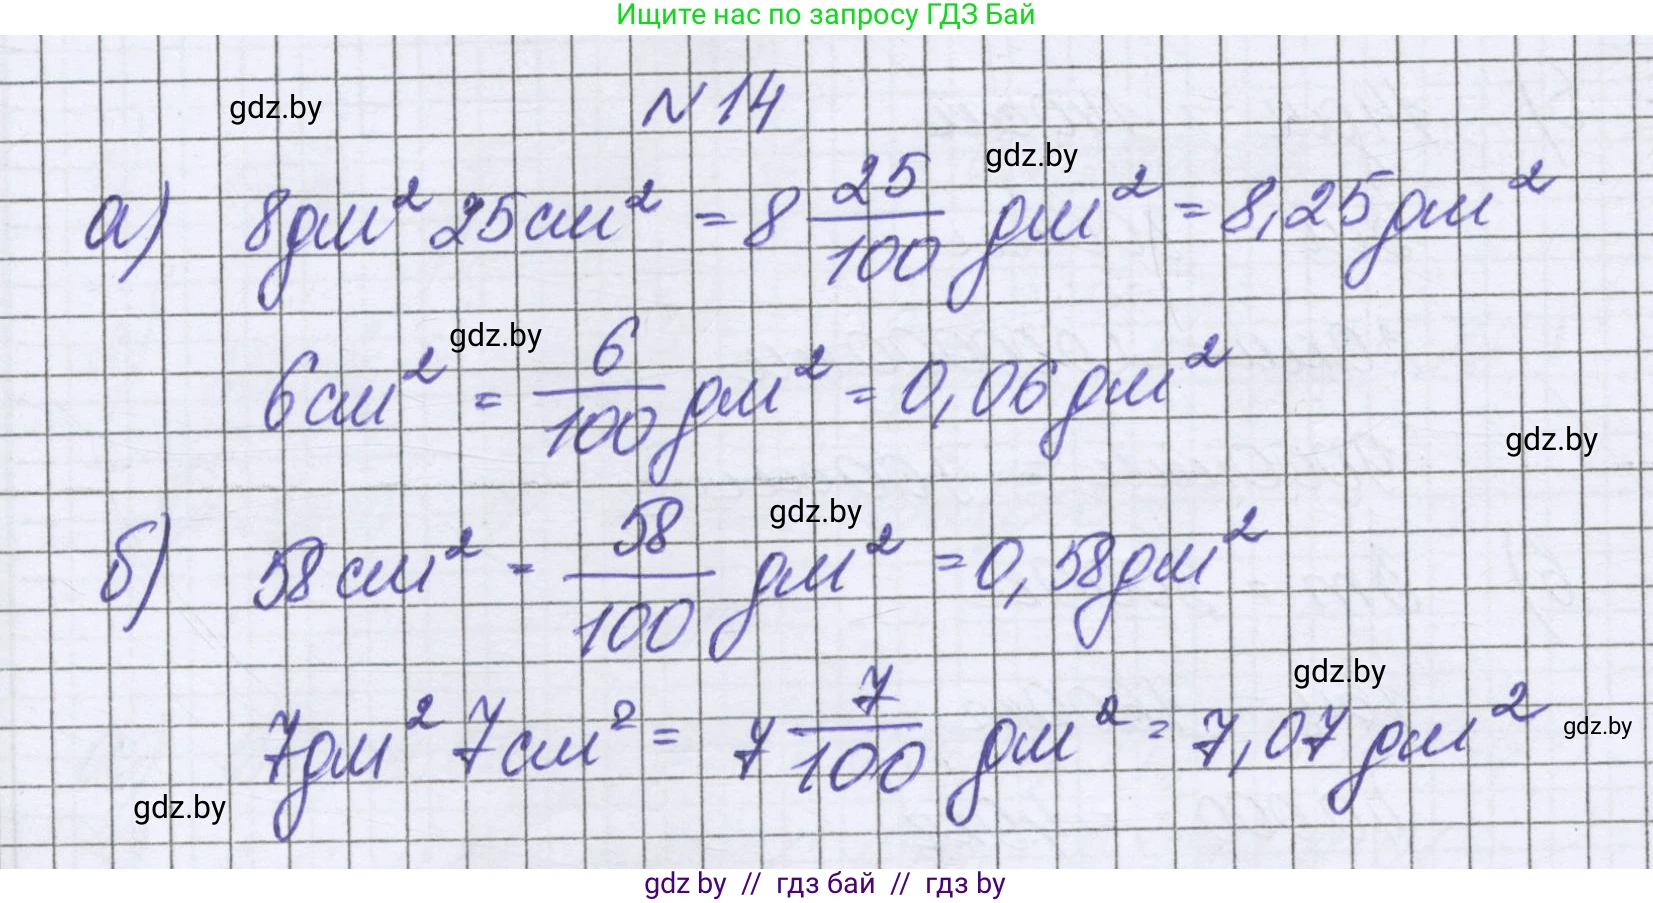 Ищите нас по запросу ГДЗ Бай
gdz.by
N 14
gdz.by
а) 8дм² 25см² = 8 25/100 дм² = 8,25дм²
gdz.by
6см² = 6/100 дм² = 0,06дм²
gdz.by
gdz.by
б) 58см² = 58/100 дм² = 0,58дм²
gdz.by
7дм² 7см² = 7 7/100 дм² = 7,07дм²
gdz.by
gdz.by
gdz by // гдз бай // гдз by